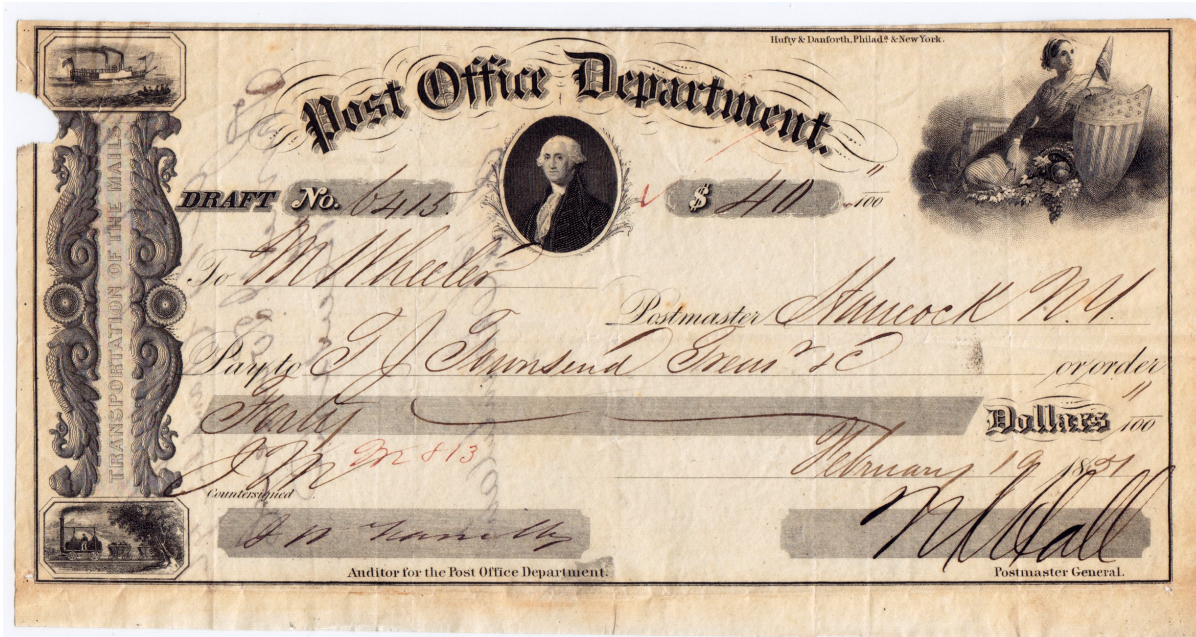 Hufty & Danforth, Philadª. & New York.
Post Office Department.
TRANSPORTATION OF THE MAILS
DRAFT No. 6415. $ 40 "/100
To M Wheeler
Postmaster Hancock N.Y.
Pay to T J Townsend Treasr &c or order
Forty Dollars "/100
J M m 813
February 19 1851
Countersigned
N K Hall
Auditor for the Post Office Department.
Postmaster General.